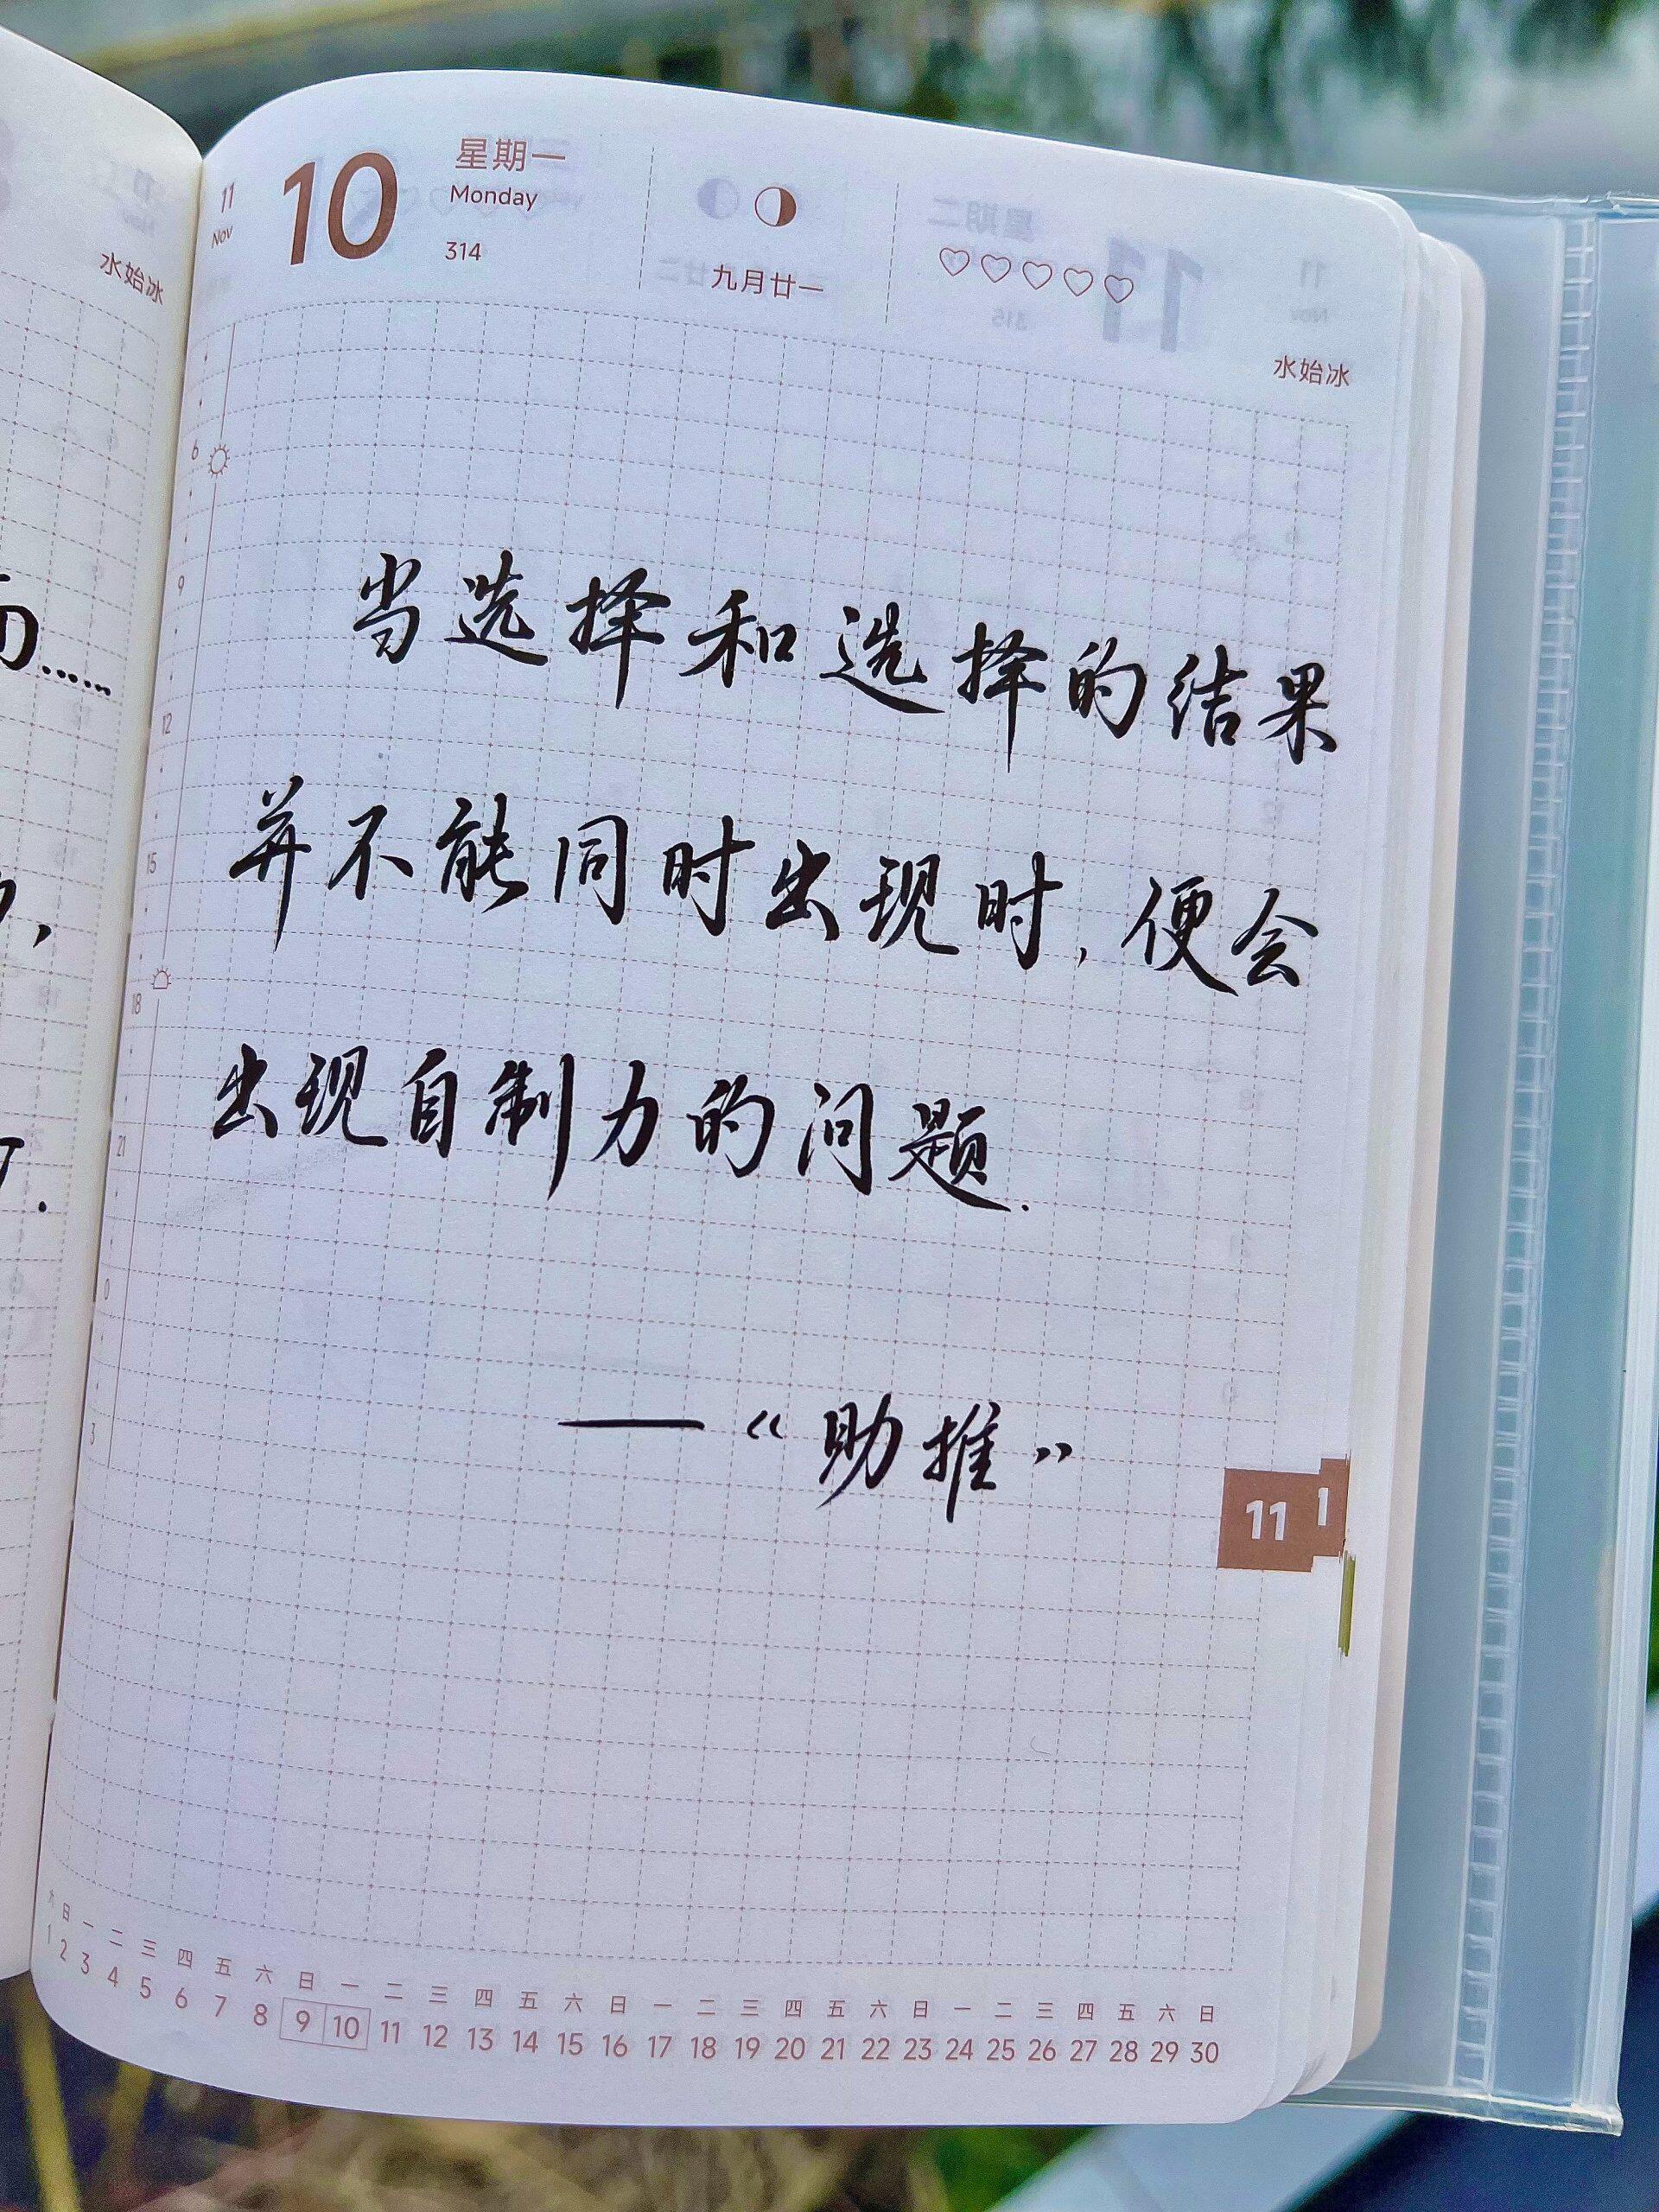 11
Nov
10
星期一
Monday
314
九月廿一
水始冰
水始冰
6
9
12
15
18
21
0
3
当选择和选择的结果
并不能同时出现时,便会
出现自制力的问题.
—《助推》
11
1
六 日 一 二 三 四 五 六 日 一 二 三 四 五 六 日 一 二 三 四 五 六 日 一 二 三 四 五 六 日
1 2 3 4 5 6 7 8 9 10 11 12 13 14 15 16 17 18 19 20 21 22 23 24 25 26 27 28 29 30